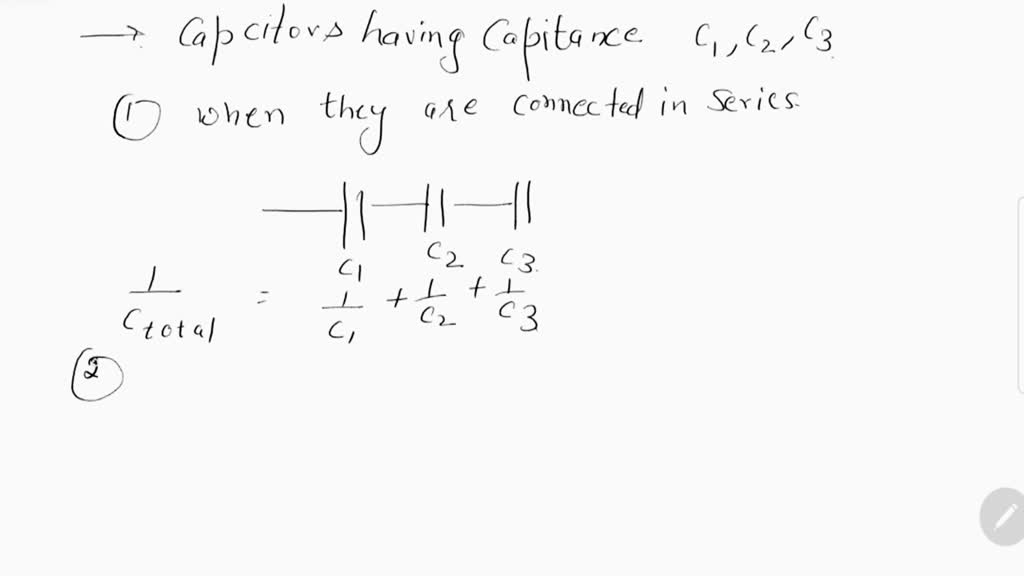 → Capcitors having Capitance C1, C2, C3.
① when they are connected in series.
C1 C2 C3.
1/Ctotal = 1/C1 + 1/C2 + 1/C3
②